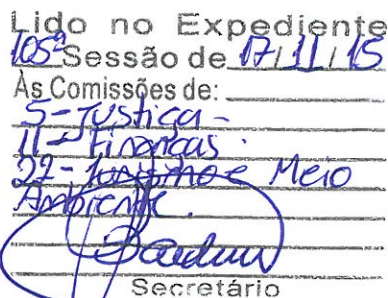 Lido no Expediente
105ª Sessão de 17/11/15
Às Comissões de:
5-Justiça-
11- Finanças.
22- Turismo e Meio
Ambiente.
Secretário